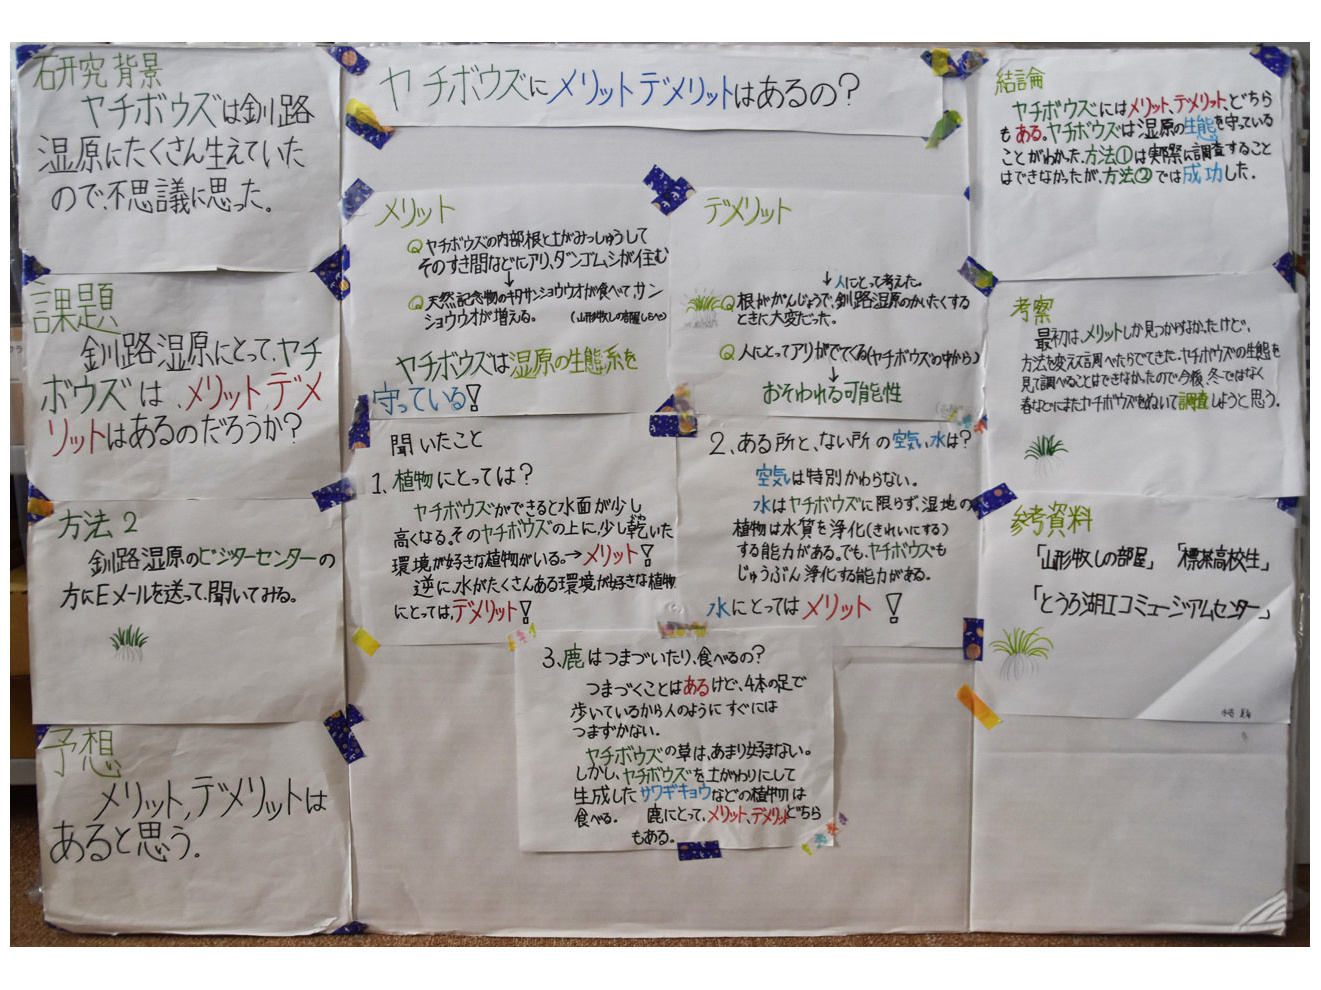 ヤチボウズにメリットデメリットはあるの？
研究背景
ヤチボウズは釧路
湿原にたくさん生えていた
ので、不思議に思った。
課題
釧路湿原にとって、ヤチ
ボウズは、メリットデメ
リットはあるのだろうか？
方法2
釧路湿原のビジターセンターの
方にEメールを送って、聞いてみる。
予想
メリット,デメリットは
あると思う。
メリット
ヤチボウズの内部根と土がみっしゅうして
そのすき間などにアリ、ダンゴムシが住む
↓
天然記念物のキタサンショウウオが食べて、サン
ショウウオが増える。
ヤチボウズは湿原の生態系を
守っている!
デメリット
↓人にとって考えた。
根ががんじょうで、釧路湿原のかいたくする
ときに大変だった。
人にとってアリがでてくる(ヤチボウズの中から)
↓
おそわれる可能性
聞いたこと
1、植物にとっては？
ヤチボウズができると水面が少し
高くなる。そのヤチボウズの上に、少し乾いた
環境が好きな植物がいる。→メリット!
逆に、水がたくさんある環境が好きな植物
にとっては、デメリット!
2、ある所と、ない所の空気、水は？
空気は特別かわらない。
水はヤチボウズに限らず、湿地の
植物は水質を浄化(きれいにする)
する能力がある。でも、ヤチボウズも
じゅうぶん浄化する能力がある。
水にとってはメリット!
3、鹿はつまづいたり、食べるの？
つまづくことはあるけど、4本の足で
歩いているから人のようにすぐには
つまずかない。
ヤチボウズの草は、あまり好まない。
しかし、ヤチボウズを土がわりにして
生成したサワギキョウなどの植物は
食べる。 鹿にとって、メリット、デメリットどちら
もある。
結論
ヤチボウズにはメリット、デメリット、どちら
もある。ヤチボウズは湿原の生態を守っている
ことがわかった。方法①は実際に調査すること
はできなかったが、方法②では成功した。
考察
最初は、メリットしか見つからなかったけど、
方法を変えて調べたらでてきた。ヤチボウズの生態を
見て調べることはできなかったので今後、冬ではなく
春などにまたヤチボウズをぬいて調査しようと思う。
参考資料
「山形牧しの部屋」 「標茶高校生」
「とうろ湖エコミュージアムセンター」